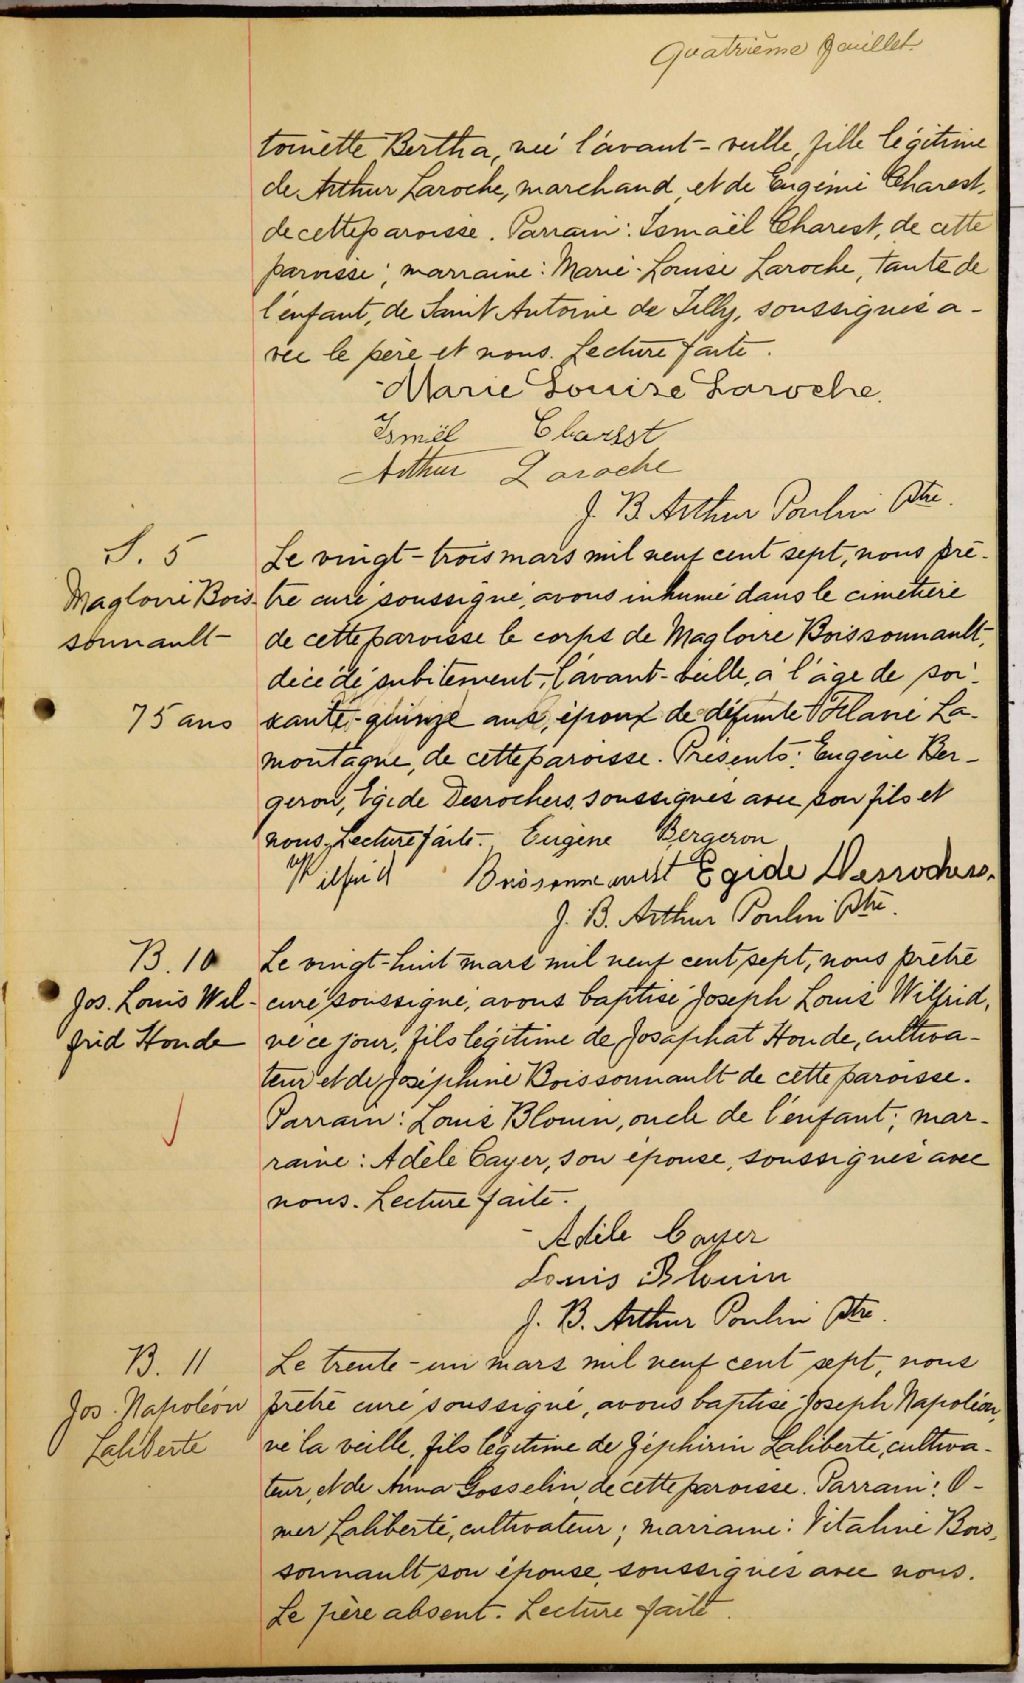 Quatrième feuillet.
toinette Bertha, née l'avant-veille, fille légitime
de Arthur Laroche, marchand, et de Eugénie Charest,
de cette paroisse. Parrain: Ismaël Charest, de cette
paroisse; marraine: Marie-Louise Laroche, tante de
l'enfant, de Saint Antoine de Tilly, soussignés a-
vec le père et nous. Lecture faite.
Marie Louise Laroche.
Ismël Charest
Arthur Laroche
J. B. Arthur Poulin Ptre.
S. 5
Magloire Bois-
sonnault
75 ans
Le vingt-trois mars mil neuf cent sept, nous prê-
tre curé soussigné, avons inhumé dans le cimetière
de cette paroisse le corps de Magloire Boissonnault,
décédé subitement, l'avant-veille, à l'âge de soi-
xante-quinze ans, époux de défunte Flavie La-
montagne, de cette paroisse. Présents: Eugène Ber-
geron, Egide Desrochers soussignés avec son fils et
nous. Lecture faite. Eugène Bergeron
Wilfrid Boissonneault Egide Desrochers.
J. B. Arthur Poulin Ptre.
B. 10
Jos. Louis Wil-
frid Houde
Le vingt-huit mars mil neuf cent sept, nous prêtre
curé soussigné, avons baptisé Joseph Louis Wilfrid,
né ce jour, fils légitime de Josaphat Houde, cultiva-
teur et de Joséphine Boissonnault de cette paroisse.
Parrain: Louis Blouin, oncle de l'enfant; mar-
raine: Adèle Cayer, son épouse, soussignés avec
nous. Lecture faite.
Adèle Cayer
Louis Blouin
J. B. Arthur Poulin Ptre.
B. 11
Jos. Napoléon
Laliberté
Le trente-un mars mil neuf cent sept, nous
prêtre curé soussigné, avons baptisé Joseph Napoléon,
né la veille, fils légitime de Zéphirin Laliberté, cultiva-
teur, et de Anna Gosselin, de cette paroisse. Parrain: O-
mer Laliberté, cultivateur; marraine: Vitaline Bois-
sonnault son épouse, soussignés avec nous.
Le père absent. Lecture faite.